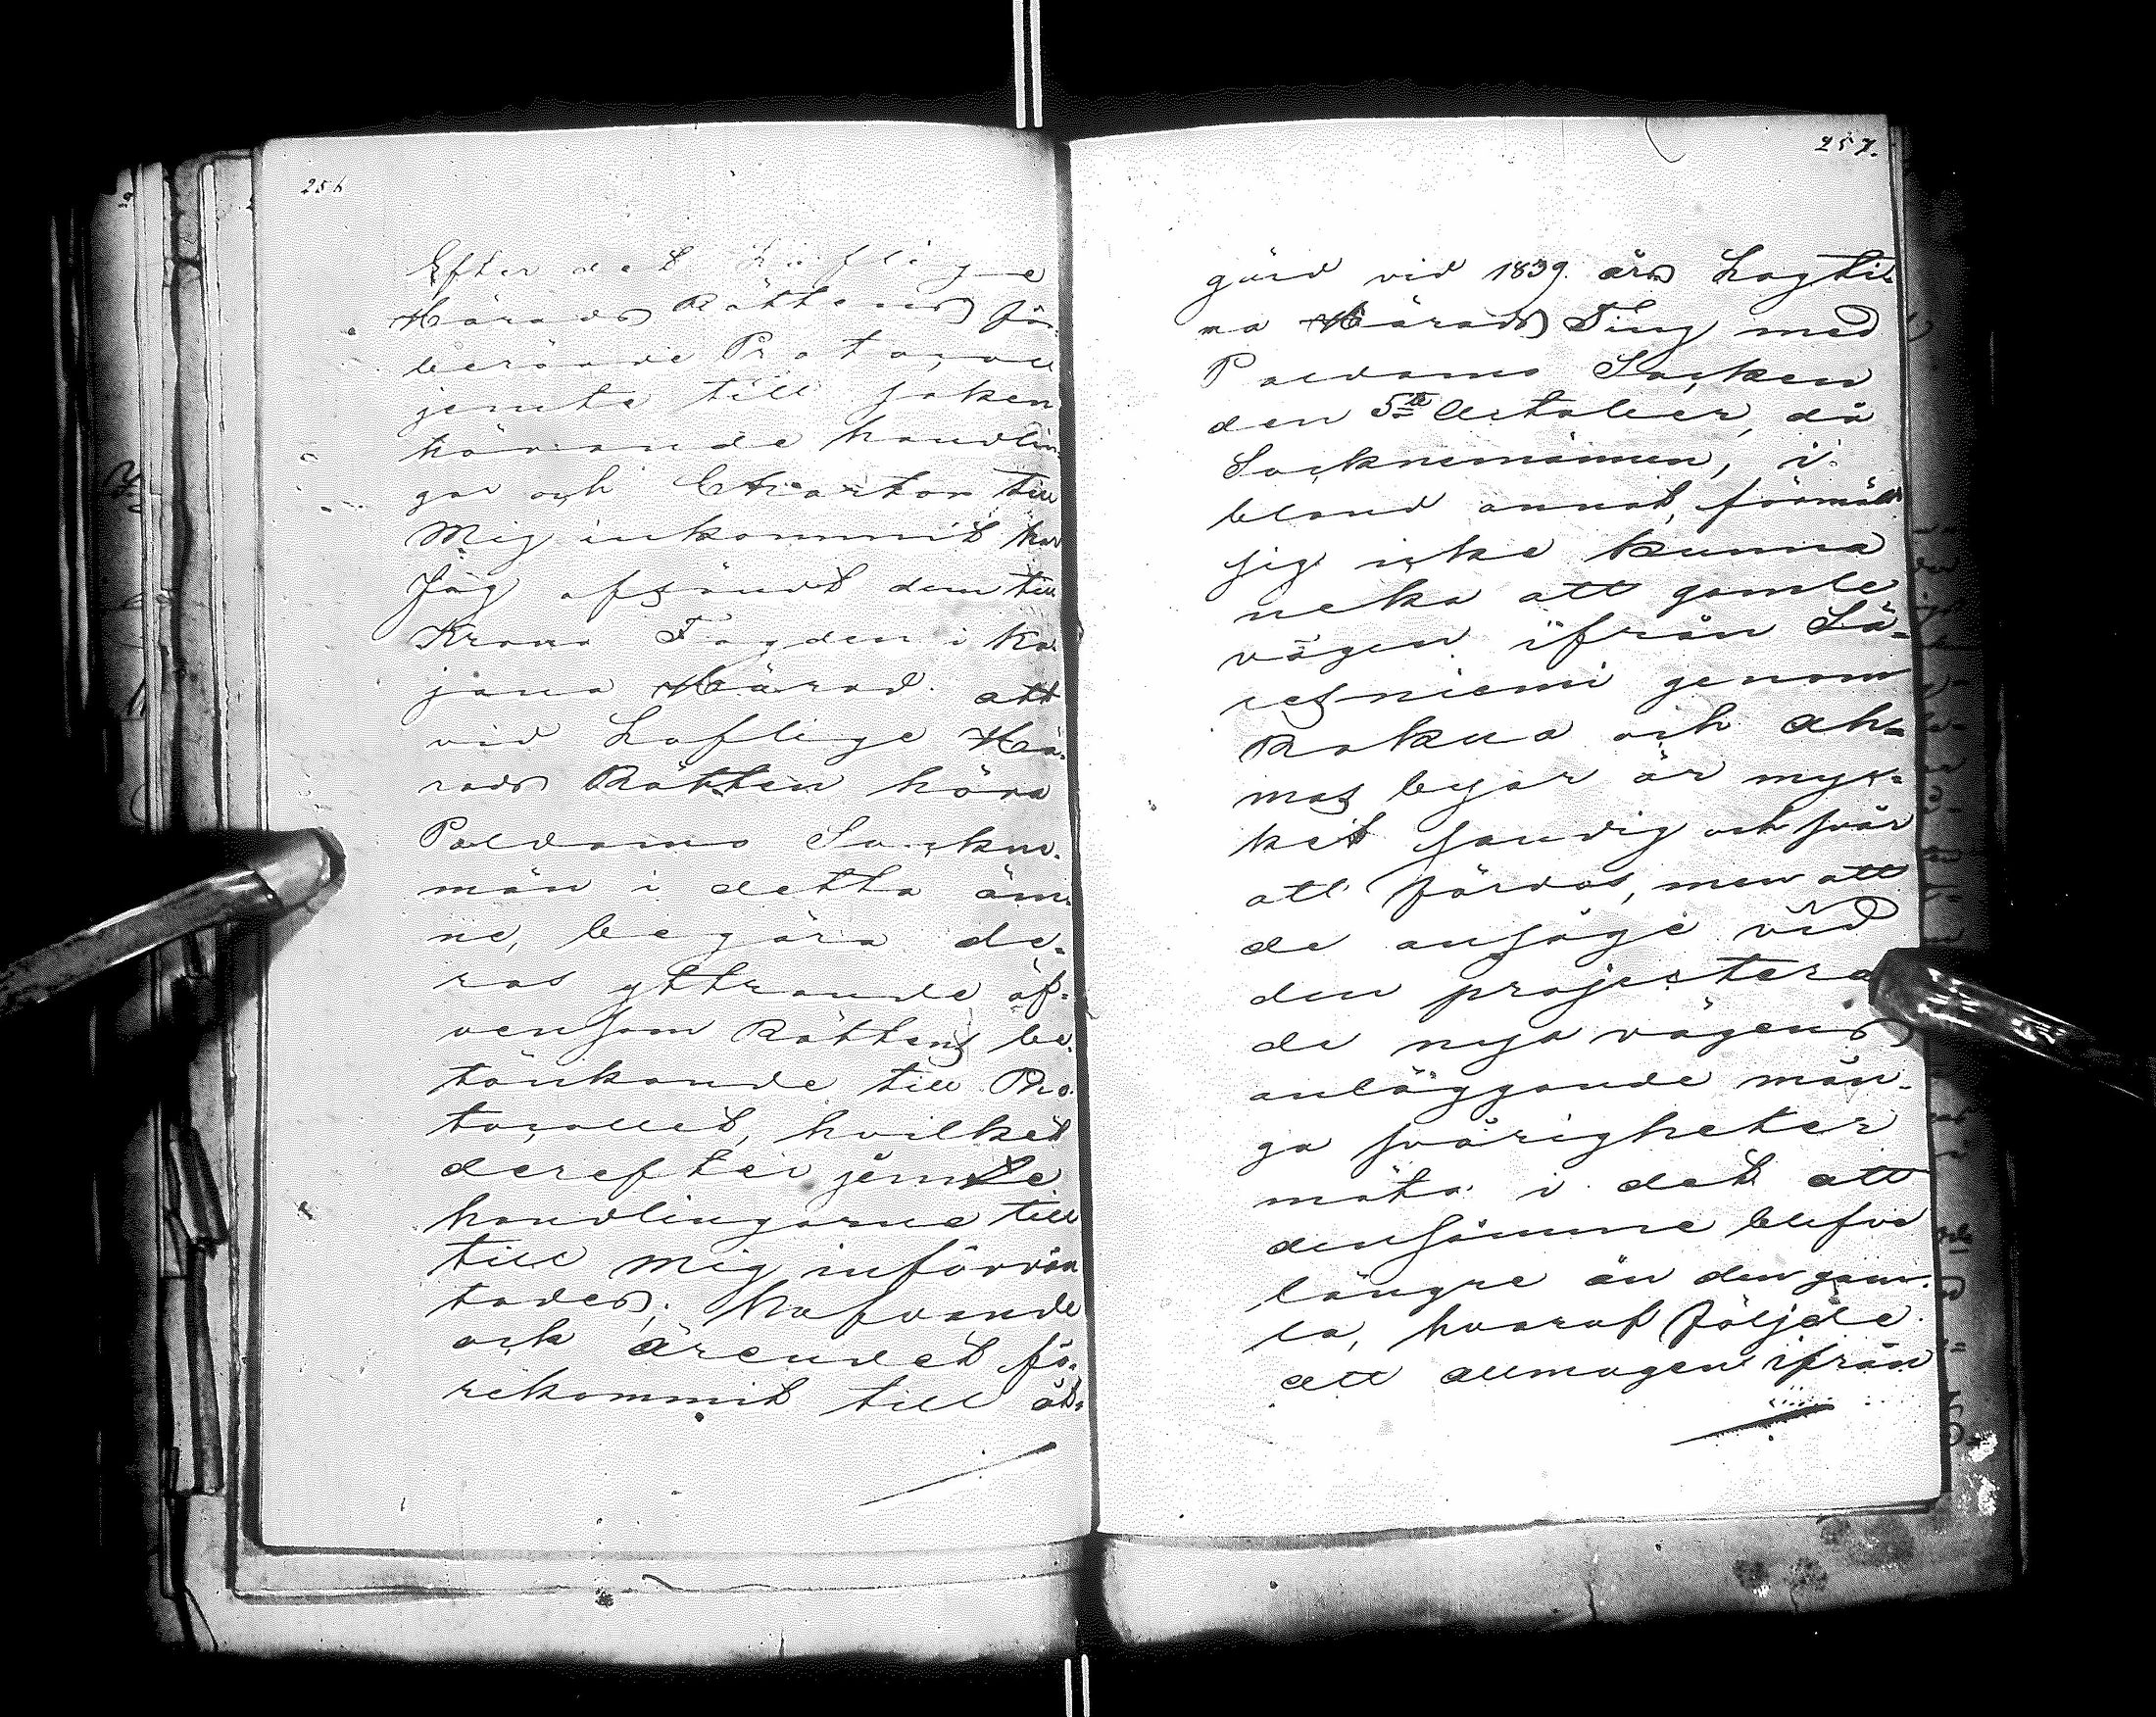 256
Efter det Lofliga
Härads Rättens fö-
berörde Protocoll
jemte till saken
hörande handlin-
gar och Chartor till
Mig inkommit har
Jag afsändt dem till
Krono Fogden i Ka-
jana Härad att
vid Loflige Hä-
rads Rätten höra
Paldamo Sockne-
män i detta äm-
ne, begära de-
ras yttrande äf-
vensom Rättens be-
tänkande till Pro-
tocollet, hvilket
derefter jemte
handlingarne till
till mig införvän
tades; hafvande
och ärendet fö-
rekommit till åt-
257.
gärd vid 1839. års Lagti-
ma Härads Ting med
Paldamo Socken
den 5te October, då
Socknemännen, i
bland annat, förmält
sig icke kunna
neka att gamle
vägen ifrån Sä-
resniemi genom
Rokua och Ah-
mas byar är myc-
ket sandig och svår
att färdas, men att
de ansåge vid
den projectera
de nya vägens
anläggande mån-
ga svårigheter
möta i det att
densamme blefve
längre än den gam-
la, hvaraf följde
att allmogen ifrån